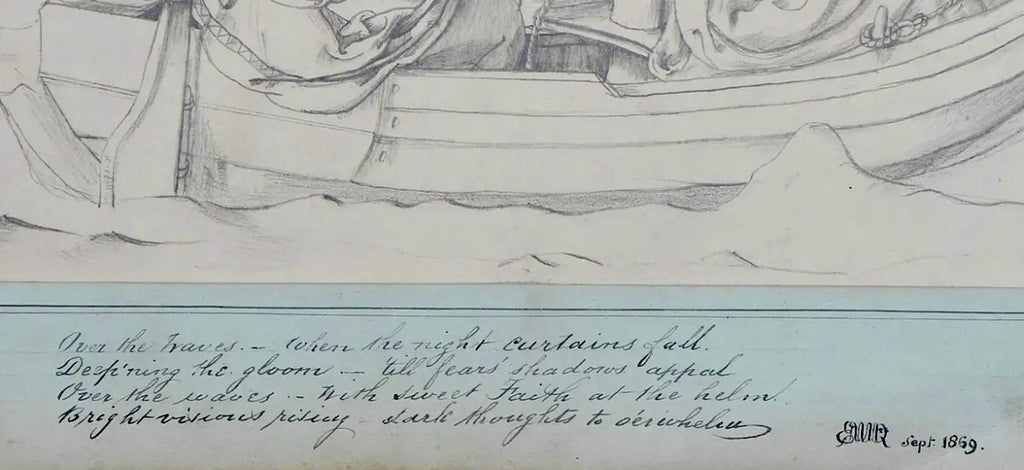 Over the Waves. – When the night curtains fall.
Deep'ning the gloom – 'till fears shadows appal
Over the waves. – With sweet Faith at the helm.
Bright visions rising – dark thoughts to o'erwhelm
Sept. 1869.